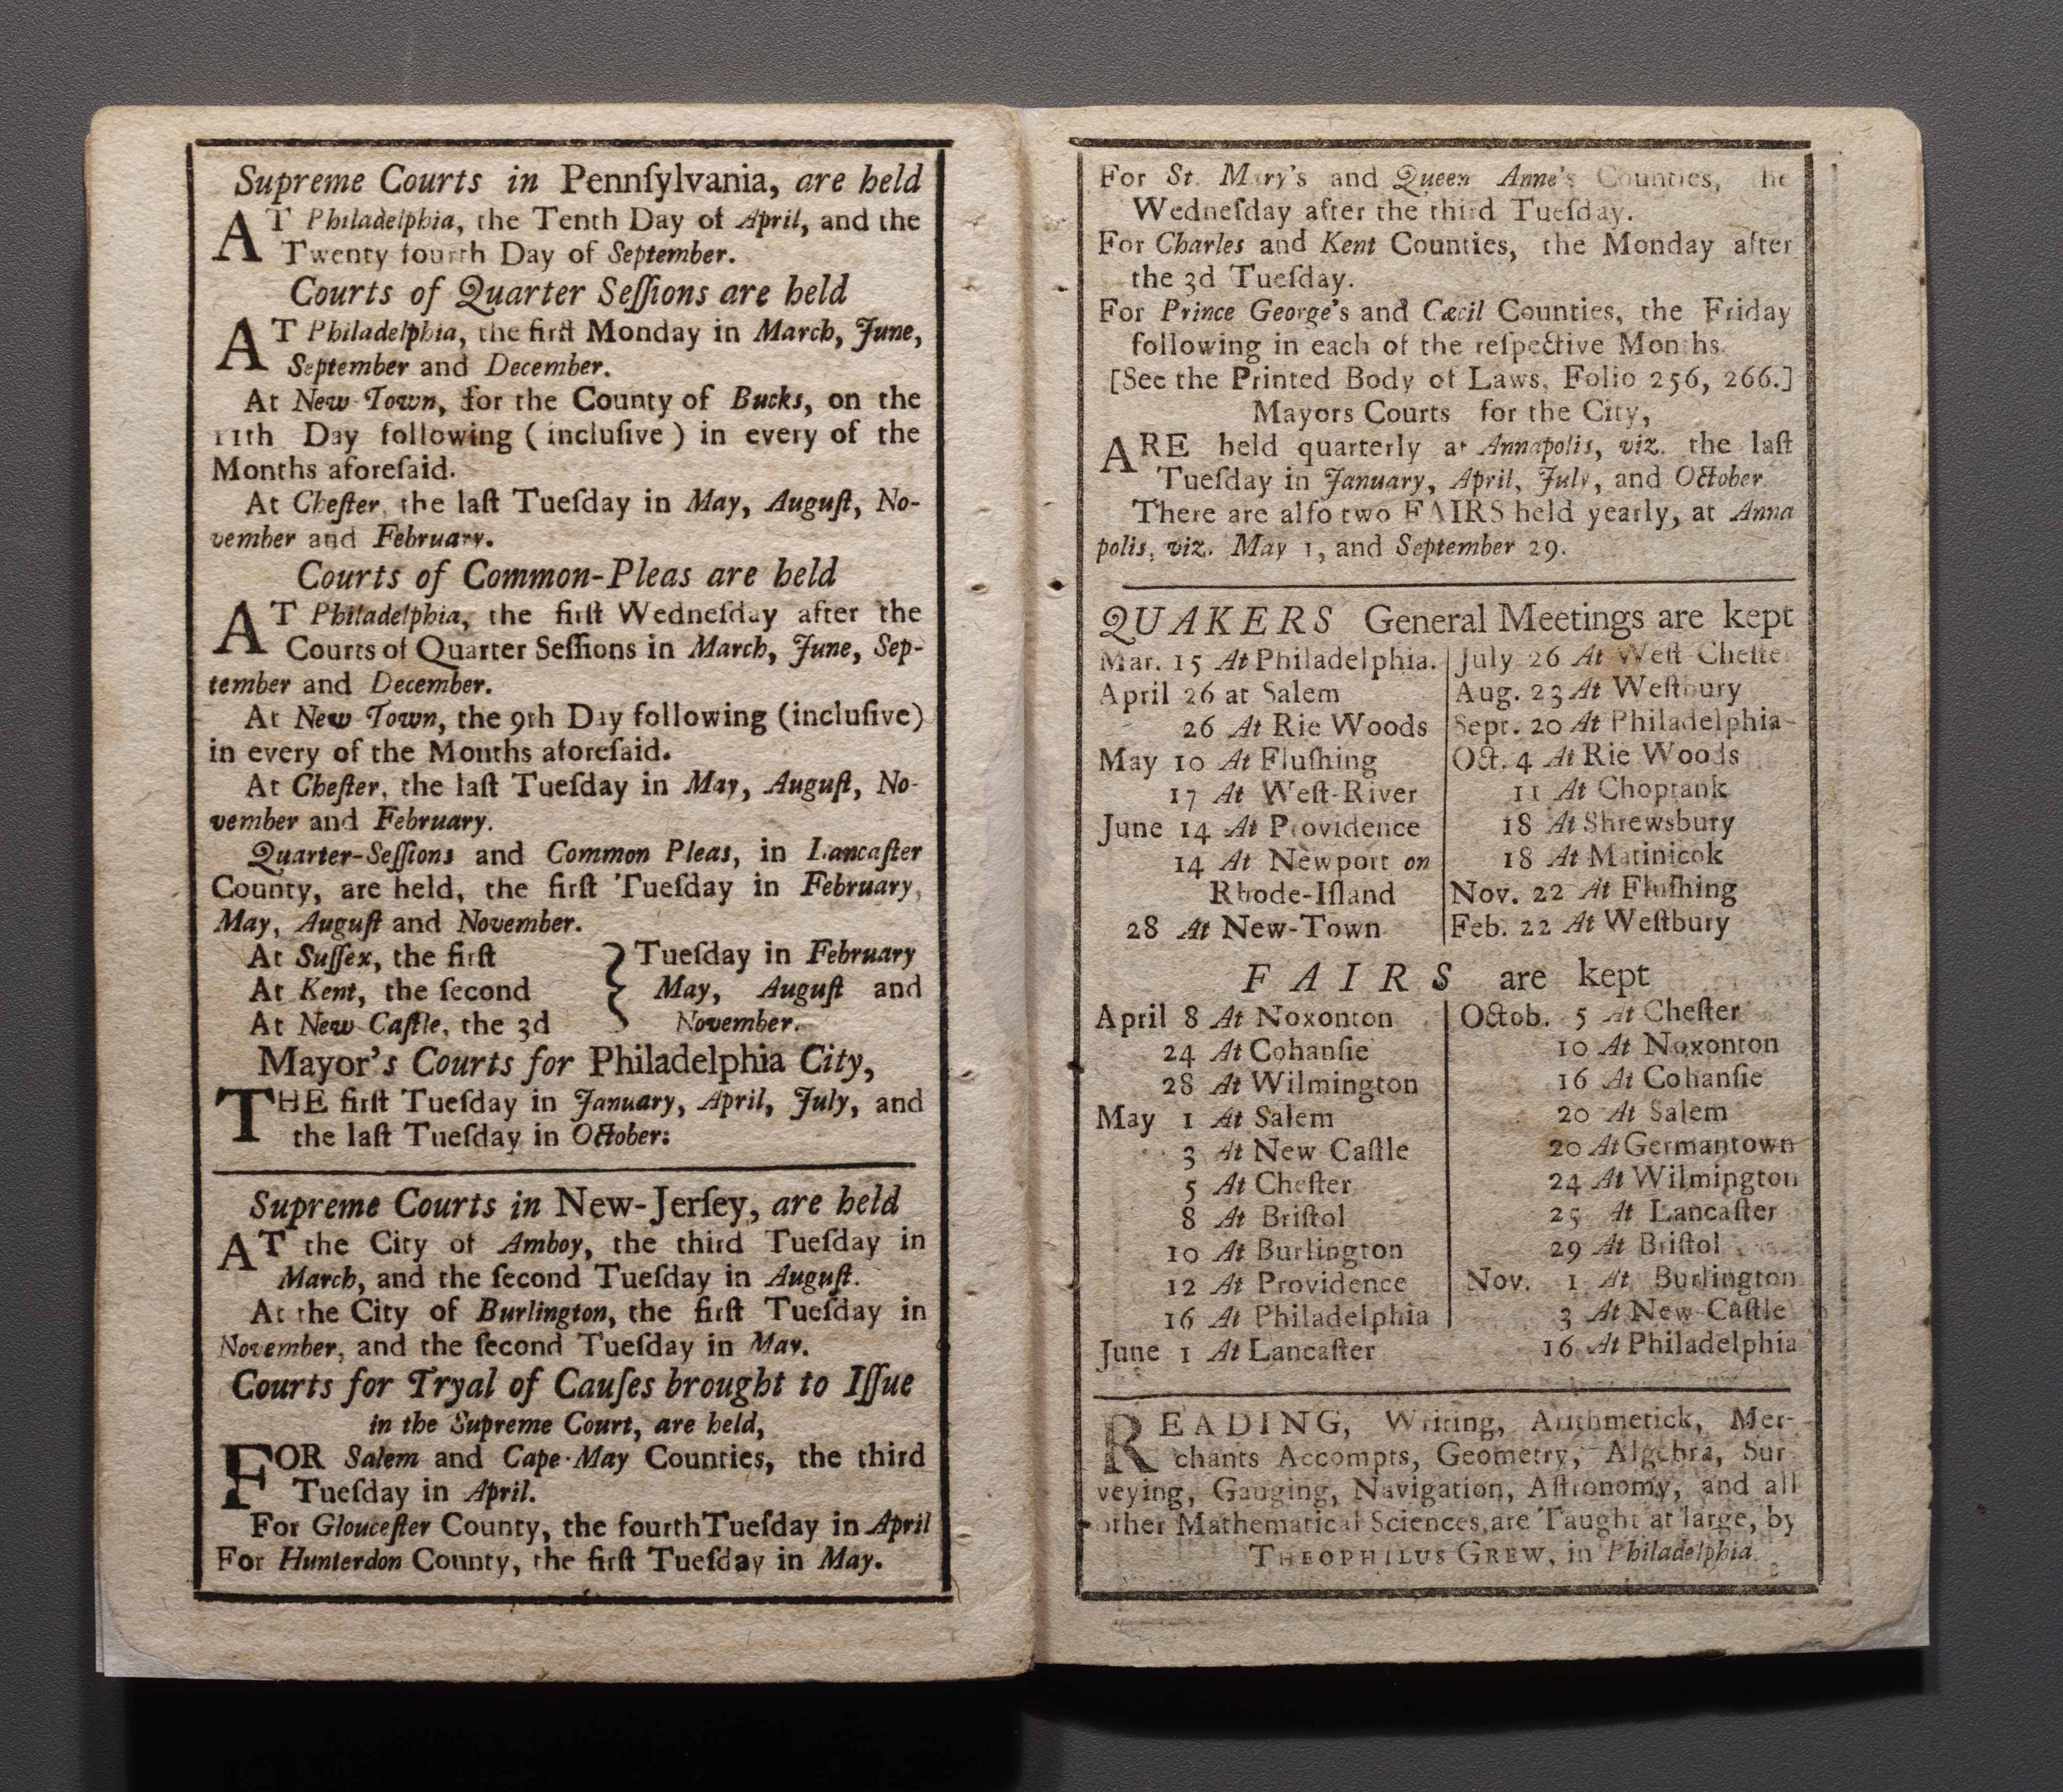 Supreme Courts in Pennſylvania, are held
AT Philadelphia, the Tenth Day of April, and the
Twenty fourth Day of September.
Courts of Quarter Seſſions are held
AT Philadelphia, the firſt Monday in March, June,
September and December.
At New Town, for the County of Bucks, on the
11th Day following ( incluſive ) in every of the
Months aforeſaid.
At Cheſter, the laſt Tueſday in May, Auguſt, No-
vember and February.
Courts of Common-Pleas are held
AT Philadelphia, the firſt Wedneſday after the
Courts of Quarter Seſſions in March, June, Sep-
tember and December.
At New Town, the 9th Day following (incluſive)
in every of the Months aforeſaid.
At Cheſter, the laſt Tueſday in May, Auguſt, No-
vember and February.
Quarter-Seſſions and Common Pleas, in Lancaſter
County, are held, the firſt Tueſday in February,
May, Auguſt and November.
At Suſſex, the firſt } Tueſday in February
At Kent, the ſecond } May, Auguſt and
At New Caſtle, the 3d } November.
Mayor's Courts for Philadelphia City,
THE firſt Tueſday in January, April, July, and
the laſt Tueſday in October:
Supreme Courts in New-Jerſey, are held
AT the City of Amboy, the third Tueſday in
March, and the ſecond Tueſday in Auguſt.
At the City of Burlington, the firſt Tueſday in
November, and the ſecond Tueſday in May.
Courts for Tryal of Cauſes brought to Iſſue
in the Supreme Court, are held,
FOR Salem and Cape-May Counties, the third
Tueſday in April.
For Glouceſter County, the fourth Tueſday in April
For Hunterdon County, the firſt Tueſday in May.
For St. Mary's and Queen Anne's Counties, the
Wedneſday after the third Tueſday.
For Charles and Kent Counties, the Monday after
the 3d Tueſday.
For Prince George's and Cæcil Counties, the Friday
following in each of the reſpective Months.
[See the Printed Body of Laws, Folio 256, 266.]
Mayors Courts for the City,
ARE held quarterly at Annapolis, viz. the laſt
Tueſday in January, April, July, and October.
There are alſo two FAIRS held yearly, at Anna
polis, viz. May 1, and September 29.
QUAKERS General Meetings are kept
Mar. 15 At Philadelphia.
April 26 at Salem
26 At Rie Woods
May 10 At Fluſhing
17 At Weſt-River
June 14 At Providence
14 At Newport on
Rhode-Iſland
28 At New-Town
July 26 At Weſt Cheſte
Aug. 23 At Weſtbury
Sept. 20 At Philadelphia
Oct. 4 At Rie Woods
11 At Choptank
18 At Shrewsbury
18 At Matinicok
Nov. 22 At Fluſhing
Feb. 22 At Weſtbury
FAIRS are kept
April 8 At Noxonton
24 At Cohanſie
28 At Wilmington
May 1 At Salem
3 At New Caſtle
5 At Cheſter
8 At Briſtol
10 At Burlington
12 At Providence
16 At Philadelphia
June 1 At Lancaſter
Octob. 5 At Cheſter
10 At Noxonton
16 At Cohanſie
20 At Salem
20 At Germantown
24 At Wilmington
25 At Lancaſter
29 At Briſtol
Nov. 1 At Burlington
3 At New-Caſtle
16 At Philadelphia
READING, Writing, Arithmetick, Mer-
chants Accompts, Geometry, Algebra, Sur
veying, Gauging, Navigation, Aſtronomy, and all
other Mathematical Sciences, are Taught at large, by
THEOPHILUS GREW, in Philadelphia.